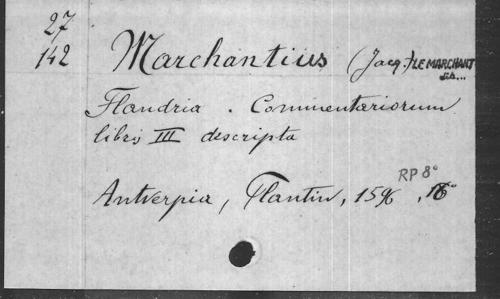 27
142 Marchantius (Jacq.) LE MARCHANT
Flandria . Commentariorum
libris III descripta
RP 8°
Antverpia, Plantin, 1596,